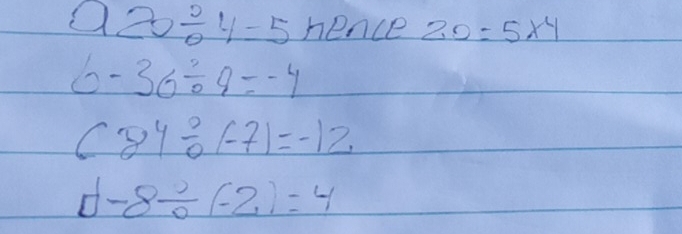 a 20 ÷ 4 = 5 hence 20 = 5 × 4
b - 36 ÷ 9 = - 4
c 84 ÷ (-7) = -12
d - 8 ÷ (-2) = 4